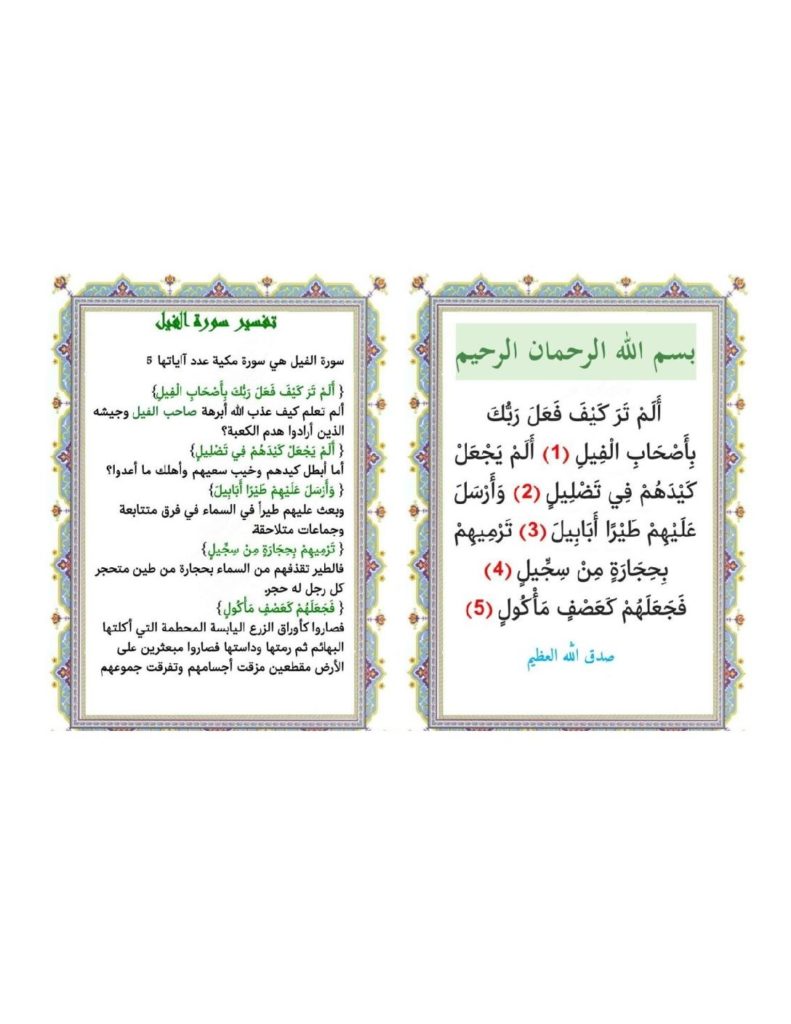 بسم الله الرحمان الرحيم
أَلَمْ تَرَ كَيْفَ فَعَلَ رَبُّكَ
بِأَصْحَابِ الْفِيلِ (1) أَلَمْ يَجْعَلْ
كَيْدَهُمْ فِي تَضْلِيلٍ (2) وَأَرْسَلَ
عَلَيْهِمْ طَيْرًا أَبَابِيلَ (3) تَرْمِيهِمْ
بِحِجَارَةٍ مِنْ سِجِّيلٍ (4)
فَجَعَلَهُمْ كَعَصْفٍ مَأْكُولٍ (5)
صدق الله العظيم
تفسير سورة الفيل
سورة الفيل هي سورة مكية عدد آاياتها 5
{ أَلَمْ تَرَ كَيْفَ فَعَلَ رَبُّكَ بِأَصْحَابِ الْفِيلِ}
ألم تعلم كيف عذب الله أبرهة صاحب الفيل وجيشه
الذين أرادوا هدم الكعبة؟
{ أَلَمْ يَجْعَلْ كَيْدَهُمْ فِي تَضْلِيلٍ}
أما أبطل كيدهم وخيب سعيهم وأهلك ما أعدوا؟
{ وَأَرْسَلَ عَلَيْهِمْ طَيْرًا أَبَابِيلَ}
وبعث عليهم طيراً في السماء في فرق متتابعة
وجماعات متلاحقة.
{ تَرْمِيهِمْ بِحِجَارَةٍ مِنْ سِجِّيلٍ}
فالطير تقذفهم من السماء بحجارة من طين متحجر
كل رجل له حجر.
{ فَجَعَلَهُمْ كَعَصْفٍ مَأْكُولٍ}
فصاروا كأوراق الزرع اليابسة المحطمة التي أكلتها
البهائم ثم رمتها وداستها فصاروا مبعثرين على
الأرض مقطعين مزقت أجسامهم وتفرقت جموعهم